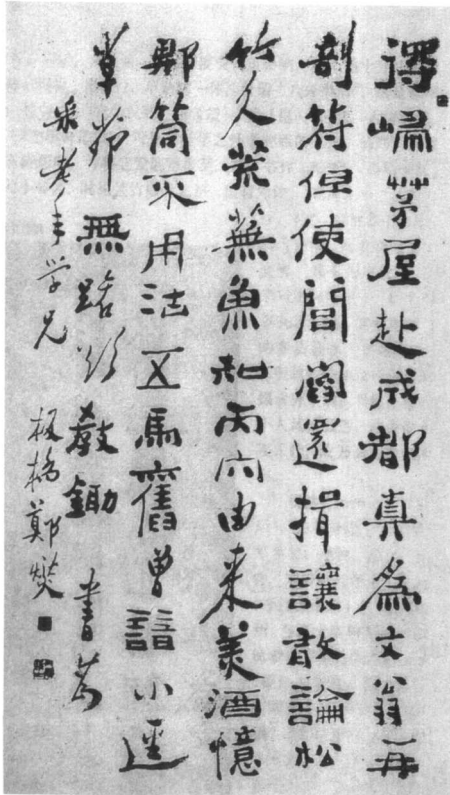 得歸茅屋赴成都真為文翁再
剖符但使閭閻還揖讓敢論松
竹久荒蕪魚知丙穴由来美酒憶
郫筒不用沽五馬舊曾諳小逕
草茆無路欲教鋤 書為
老年学兄 板橋鄭燮